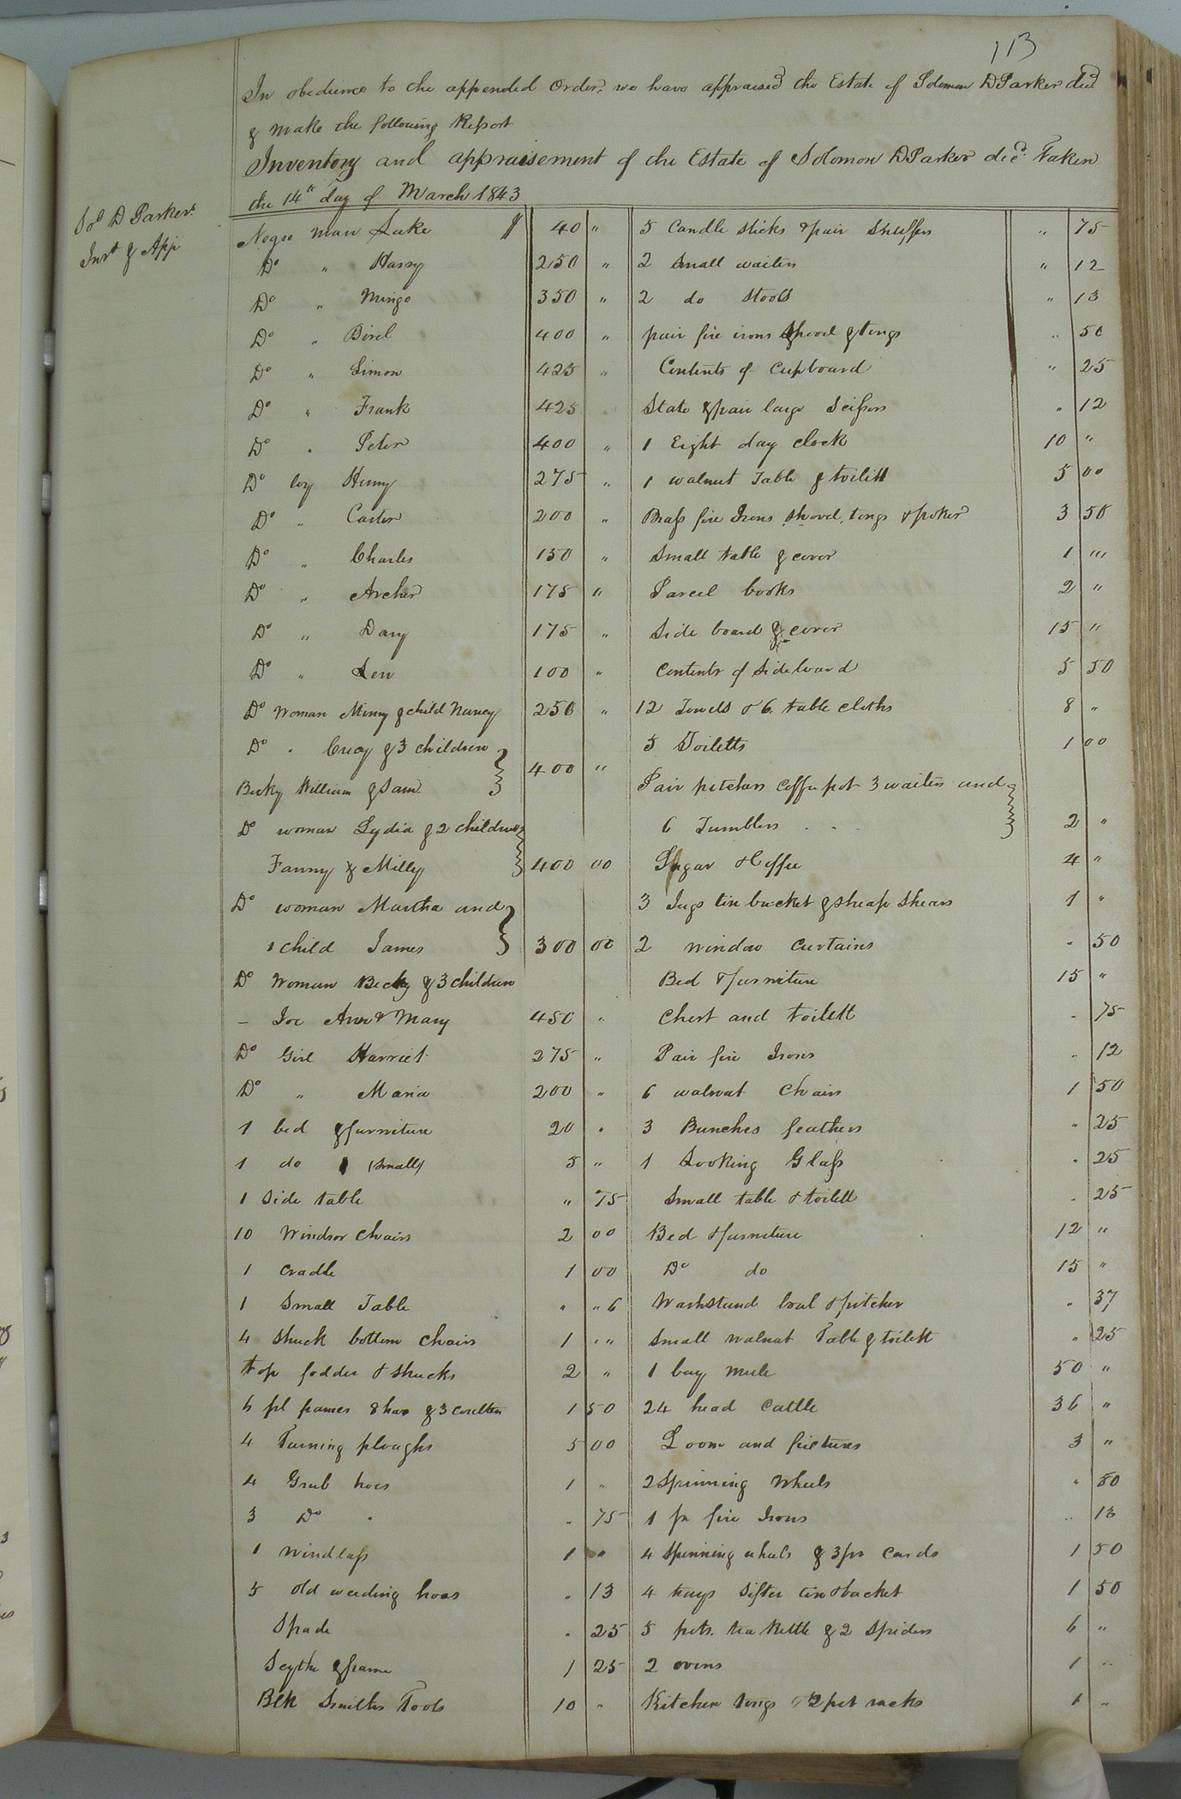 113
In obedience to the appended Order, we have appraised the Estate of Solomon D Parker decd
& make the following Report
Inventory and appraisement of the Estate of Solomon D Parker decd. Taken
the 14th day of March 1843
Sol D Parker
Invt & App
Negro man Luke $ 40 "
Do " Harry 250 "
Do " Mingo 350 "
Do " 400 "
Do " Simon 425 "
Do " Frank 425
Do " Peter 400 "
Do boy Henry 275 "
Do " Carter 200 "
Do " Charles 150 "
Do " Archer 175 "
Do " Davy 175 "
Do " Len 100 "
Do Woman Minny & child Nancy 250 "
Do " Creasy & 3 children
Becky William & Sam 400 "
Do woman Lydia & 2 children
Fanny & Milly 400 00
Do woman Martha and
1 child James 300 00
Do Woman Becky & 3 children
– Joe Ann & Mary 450 "
Do Girl Harriet 275 "
Do " Maria 200 "
1 bed & furniture 20 "
1 do (small) 5 "
1 Side table " 75
10 Windsor Chairs 2 00
1 Cradle 1 00
1 Small Table " " 6
4 Shuck bottom Chairs 1 " "
Top fodder & shucks 2 "
6 pl frames 8 hoes & 3 1 50
4 Turning ploughs 5 00
4 Grub hoes 1 "
3 Do " " 75
1 Windlass 1 00
5 old weeding hoes " 13
Spade " 25
Scythe & frame 1 25
Blk Smiths Tools 10 "
5 Candle sticks & pair Snuffers " 75
2 Small waiters " 12
2 do Stools " 13
pair fire irons Shovel & tongs " 50
Contents of Cupboard " 25
Slate & pair large Scissors " 12
1 Eight day clock 10 "
1 walnut Table & toilett 5 00
Brass fire Irons, Shovel, tongs & poker 3 50
Small table & cover 1 "
Parcel books 2 "
Side board & cover 15 "
Contents of Sideboard 5 50
12 Towels & 6 table cloths 8 "
5 Toiletts 1 00
Pair pitchers Coffee pot 3 waiters and
6 Tumblers 2 "
Sugar & Coffee 4 "
3 Jugs tin bucket & sheep Shears 1 "
2 window curtains " 50
Bed & furniture 15 "
Chest and toilett " 75
Pair fire Irons " 12
6 walnut Chairs 1 50
3 Bunches feathers " 25
1 Looking Glass " 25
Small table & toilett " 25
Bed & furniture 12 "
Do do 15 "
Washstand bowl & pitcher " 37
Small walnut Table & toilett " 25
1 bay mule 50 "
24 head Cattle 36 "
Loom and fixtures 3 "
2 Spinning Wheels " 50
1 pr fire Irons " 13
4 Spinning wheels & 3 prs Cards 1 50
4 trays Sifter tin bucket 1 50
5 pots. tea Kettle & 2 Spiders 6 "
2 ovens 1 "
Kitchen tongs & 2 pot racks 1 "